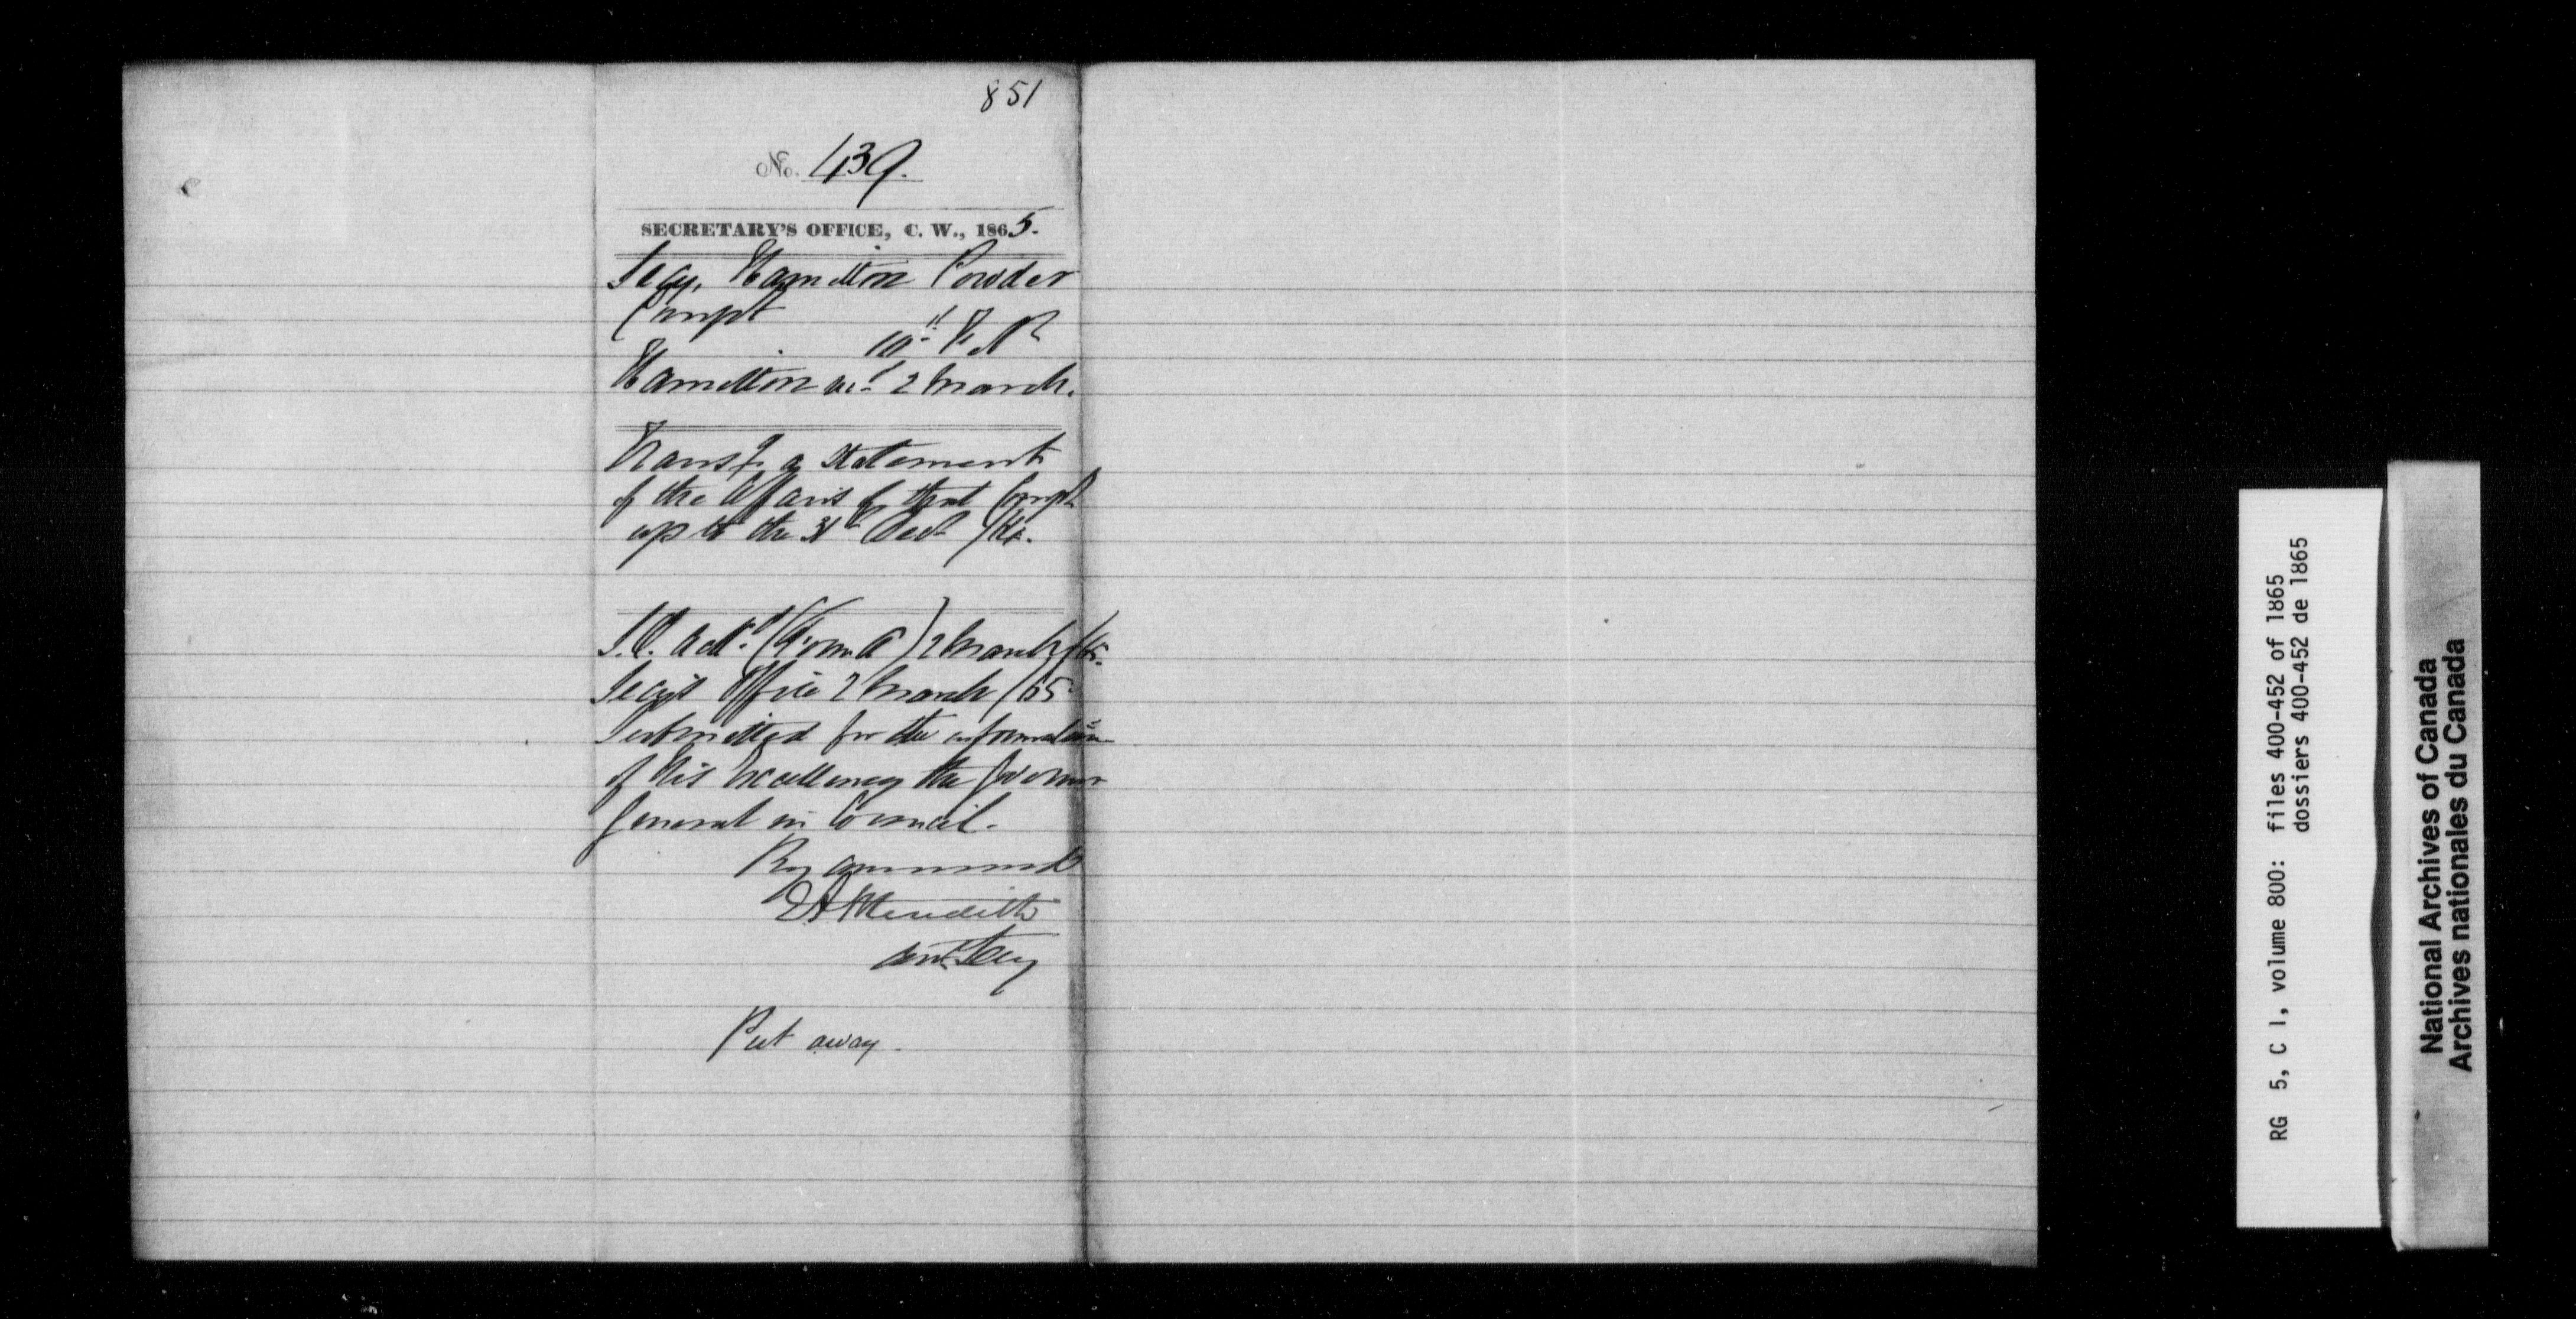 851
No. 439.
SECRETARY'S OFFICE, C. W., 1865.
Secy, Hamilton Powder
Compt
10th Feb
Hamilton 2 March.
Transg. a statement
of the Affairs of that Compt
up to the 31st Decr /64.
2 March /65.
Secys Office 2 March /65
Submitted for the information
of His Excellency the Governor
General in Council.
By command
E A Meredith
Asst. Secy
Put away.
RG 5, C 1, volume 800: files 400-452 of 1865
dossiers 400-452 de 1865
National Archives of Canada
Archives nationales du Canada